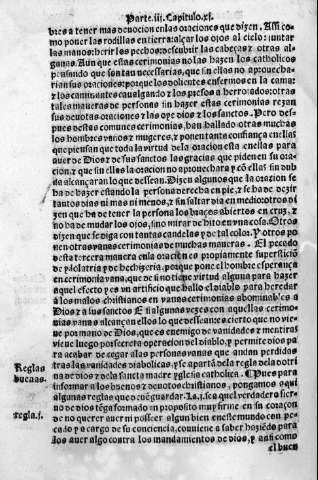 Parte.iij. Capitulo.xj.
bres a tener mas deuocion en las oraciones que dizen. Assi co-
mo poner las rodillas en tierra: alçar los ojos al cielo: juntar
las manos: herir los pechos: descubrir las cabeças y otras al-
gunas. Aun que estas cerimonias no las hazen los catholicos
pensando que son tan necessarias, que sin ellas no aprouecha-
rian sus oraciones: porque los dolientes enfermos en la cama:
y los caminantes caualgando y los presos aherrojados: otras
tales maneras de personas sin hazer estas cerimonias rezan
sus deuotas oraciones y las oye dios y los sanctos. Pero des-
pues destas comunes cerimonias, han hallado otras muchas
los hombres vanos y mugeres, y ponen tanta confiança en ellas
que piensan que toda la virtud dela oracion esta en ellas para
auer de Dios y de sus sanctos las gracias que piden en su ora-
cion, y que sin ellas la oracion no aprouechara y con ellas sin du-
da alcançaran lo que dessean. Dizen algunos que la oracion se
ha de hazer estando la persona derecha en pie, y se ha de dezir
tantos dias ni mas ni menos, y sin faltar dia en medio: otros di-
zen que ha de tener la persona los braços abiertos en cruz, y
no ha de mudar los ojos, sino mirar de hito en vna cosa. Otros
dizen que se diga con tantas candelas y de tal color. y otros po-
nen otras vanas cerimonias de muchas maneras. El peccado
desta tercera manera en la oracion es propiamente supersticion
de ydolatria y de hechizeria, porque pone el hombre esperança
en cerimonia vana, que de si no tiene virtud alguna para hazer
aquel efecto y es vn artificio que hallo el diablo para heredar
a los malos christianos en vanas cerimonias abominables a
Dios y a sus sanctos E si algunas vezes con aquellas cerimo-
nias vanas alcançan ellos lo que dessean es cierto que no vie-
ne por mano de Dios, que es enemigo de vanidades y mentiras
viene luego por secreta operacion del diablo, y permite dios pa-
ra acabar de cegar a las personas vanas que andan perdidas
tras las vanidades diabolicas, y se apartan dela regla dela doctri
na de dios y dela sancta madre yglesia catholica. Pues para
Reglas buenas.
informar a los buenos y deuotos christianos, pongamos aqui
algunas reglas que deuen guardar. La.j. sea que el verdadero sier-
regla.j.
no de dios tenga formado vn proposito muy firme en su coraçon
de no querer auer ni posseer algun bien en este mundo con pe-
cado y a cargo de su conciencia, conuiene a saber haziendo para
los auer algo contra los mandamientos de dios, y assi como
el buen